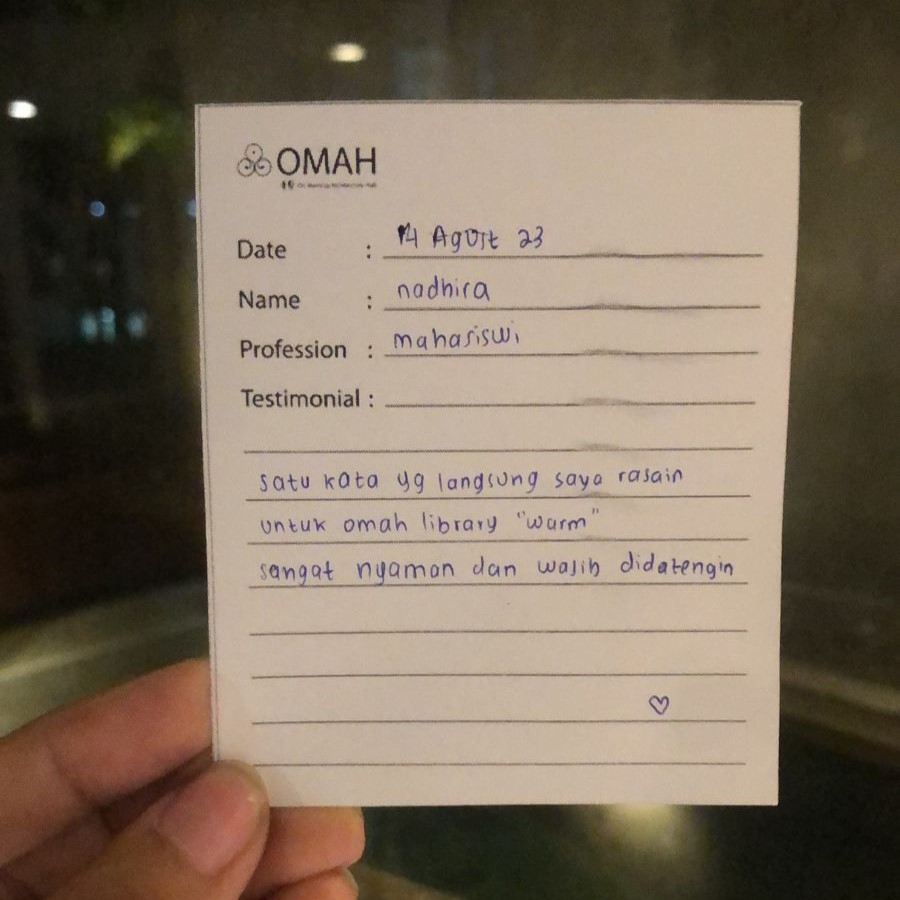 OMAH
Date : 14 Agust 23
Name : nadhira
Profession : mahasiswi
Testimonial :
satu kata yg langsung saya rasain
untuk omah library "warm"
sangat nyaman dan wajib didatengin